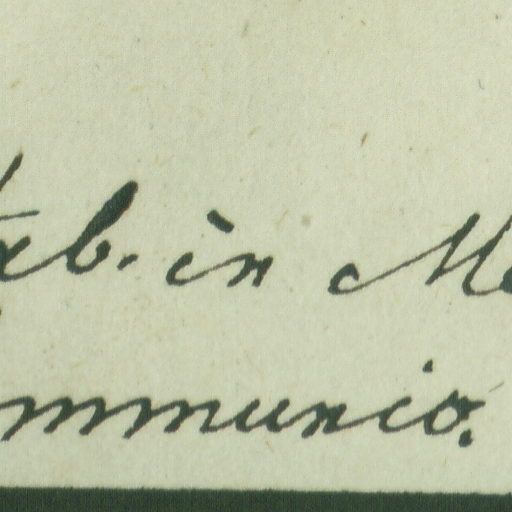 b. in M
mmunio.